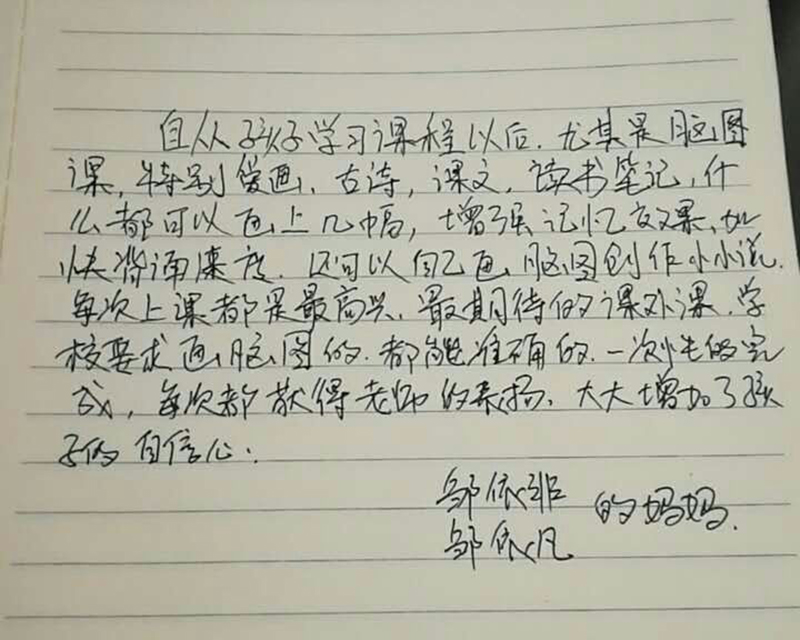 自从孩子学习课程以后.尤其是脑图
课,特别爱画、古诗,课文,读书笔记,什
么都可以画上几幅,增强记忆效果、加
快背诵速度.还可以自己画脑图创作小小说.
每次上课都是最高兴、最期待的课外课.学
校要求画脑图的.都能准确的.一次性的完
成,每次都获得老师的表扬、大大增加了孩
子的自信心.
邹依菲
邹依凡 的妈妈.